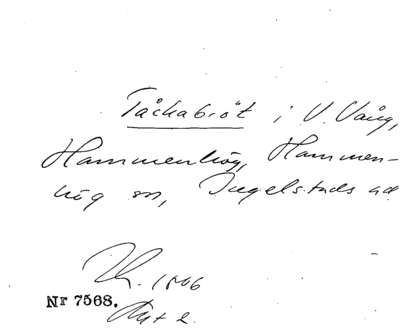 Tåckabröt i V. Vång,
Hammenhög, Hammen-
hög sn, Ingelstads hd
Nr 7568.
1806